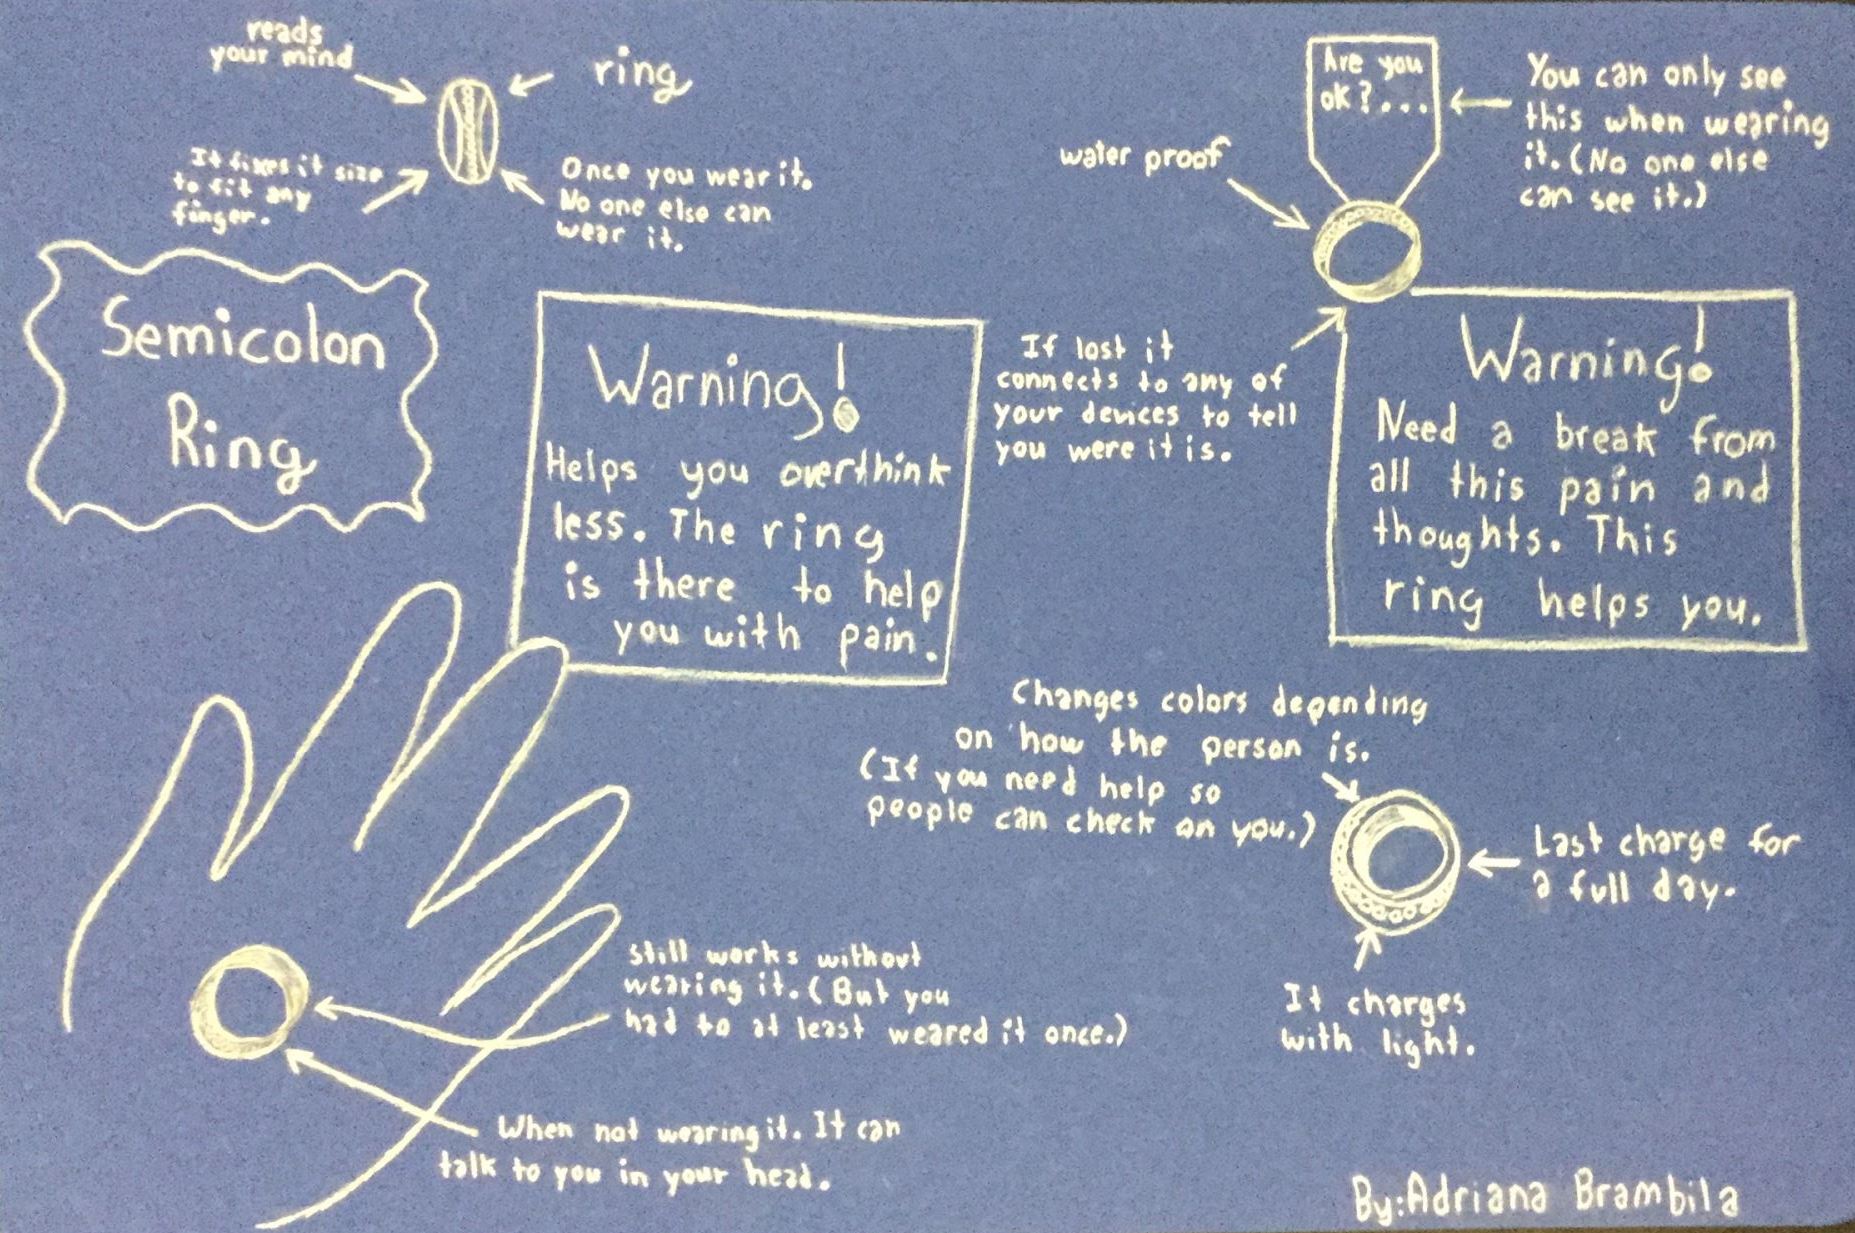 reads
your mind
ring
It fixes it size
to fit any
finger.
Once you wear it.
No one else can
wear it.
Semicolon
Ring
Warning!
Helps you overthink
less. The ring
is there to help
you with pain.
Are you
ok?...
You can only see
this when wearing
it. (No one else
can see it.)
water proof
If lost it
connects to any of
your devices to tell
you were it is.
Warning!
Need a break from
all this pain and
thoughts. This
ring helps you.
Changes colors depending
on how the person is.
(If you need help so
people can check on you.)
Last charge for
a full day.
It charges
with light.
Still works without
wearing it. (But you
had to at least weared it once.)
When not wearing it. It can
talk to you in your head.
By:Adriana Brambila